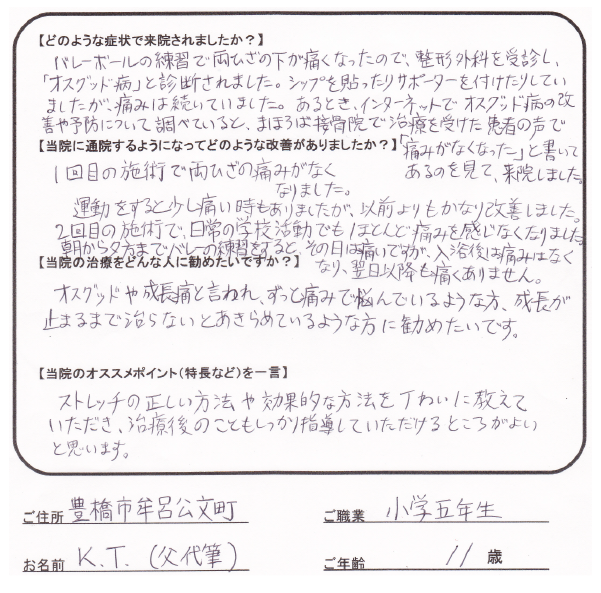 【どのような症状で来院されましたか？】
バレーボールの練習で両ひざの下が痛くなったので、整形外科を受診し、
「オスグッド病」と診断されました。シップを貼ったりサポーターを付けたりしてい
ましたが、痛みは続いていました。あるとき、インターネットでオスグッド病の改
善や予防について調べていると、まほろば接骨院で治療を受けた患者の声で
「痛みがなくなった」と書いて
あるのを見て、来院しました。
【当院に通院するようになってどのような改善がありましたか？】
1回目の施術で両ひざの痛みがなく
なりました。
運動をすると少し痛い時もありましたが、以前よりもかなり改善しました。
2回目の施術で、日常の学校活動でもほとんど痛みを感じなくなりました。
朝から夕方までバレーの練習をすると、その日は痛いですが、入浴後は痛みはなく
なり、翌日以降も痛くありません。
【当院の治療をどんな人に勧めたいですか？】
オスグッドや成長痛と言われ、ずっと痛みで悩んでいるような方、成長が
止まるまで治らないとあきらめているような方に勧めたいです。
【当院のオススメポイント（特長など）を一言】
ストレッチの正しい方法や効果的な方法を丁ねいに教えて
いただき、治療後のこともしっかり指導していただけるところがよい
と思います。
ご住所 豊橋市牟呂公文町
ご職業 小学五年生
お名前 K.T. (父代筆)
ご年齢 11 歳